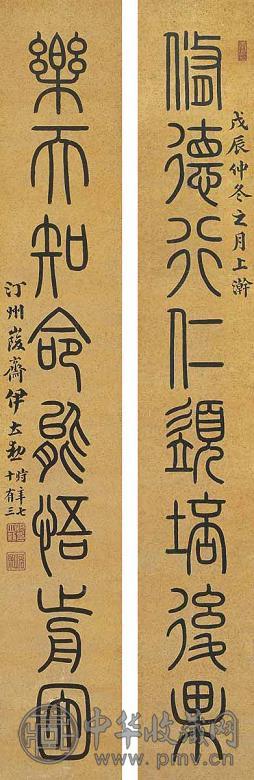 修德行仁須培後果
戊辰仲冬之月上澣
樂天知命能悟前因
汀州峻齋伊立勳時年七十有三
中华收藏网
www.pmv.cn